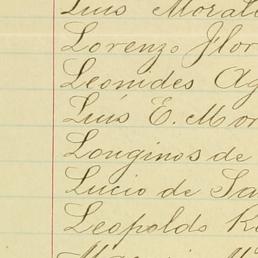 Luis Moral
Lorenzo Flor
Leonides Ag
Luis E. Mor
Longinos de
Lucio de Sa
Leopoldo R